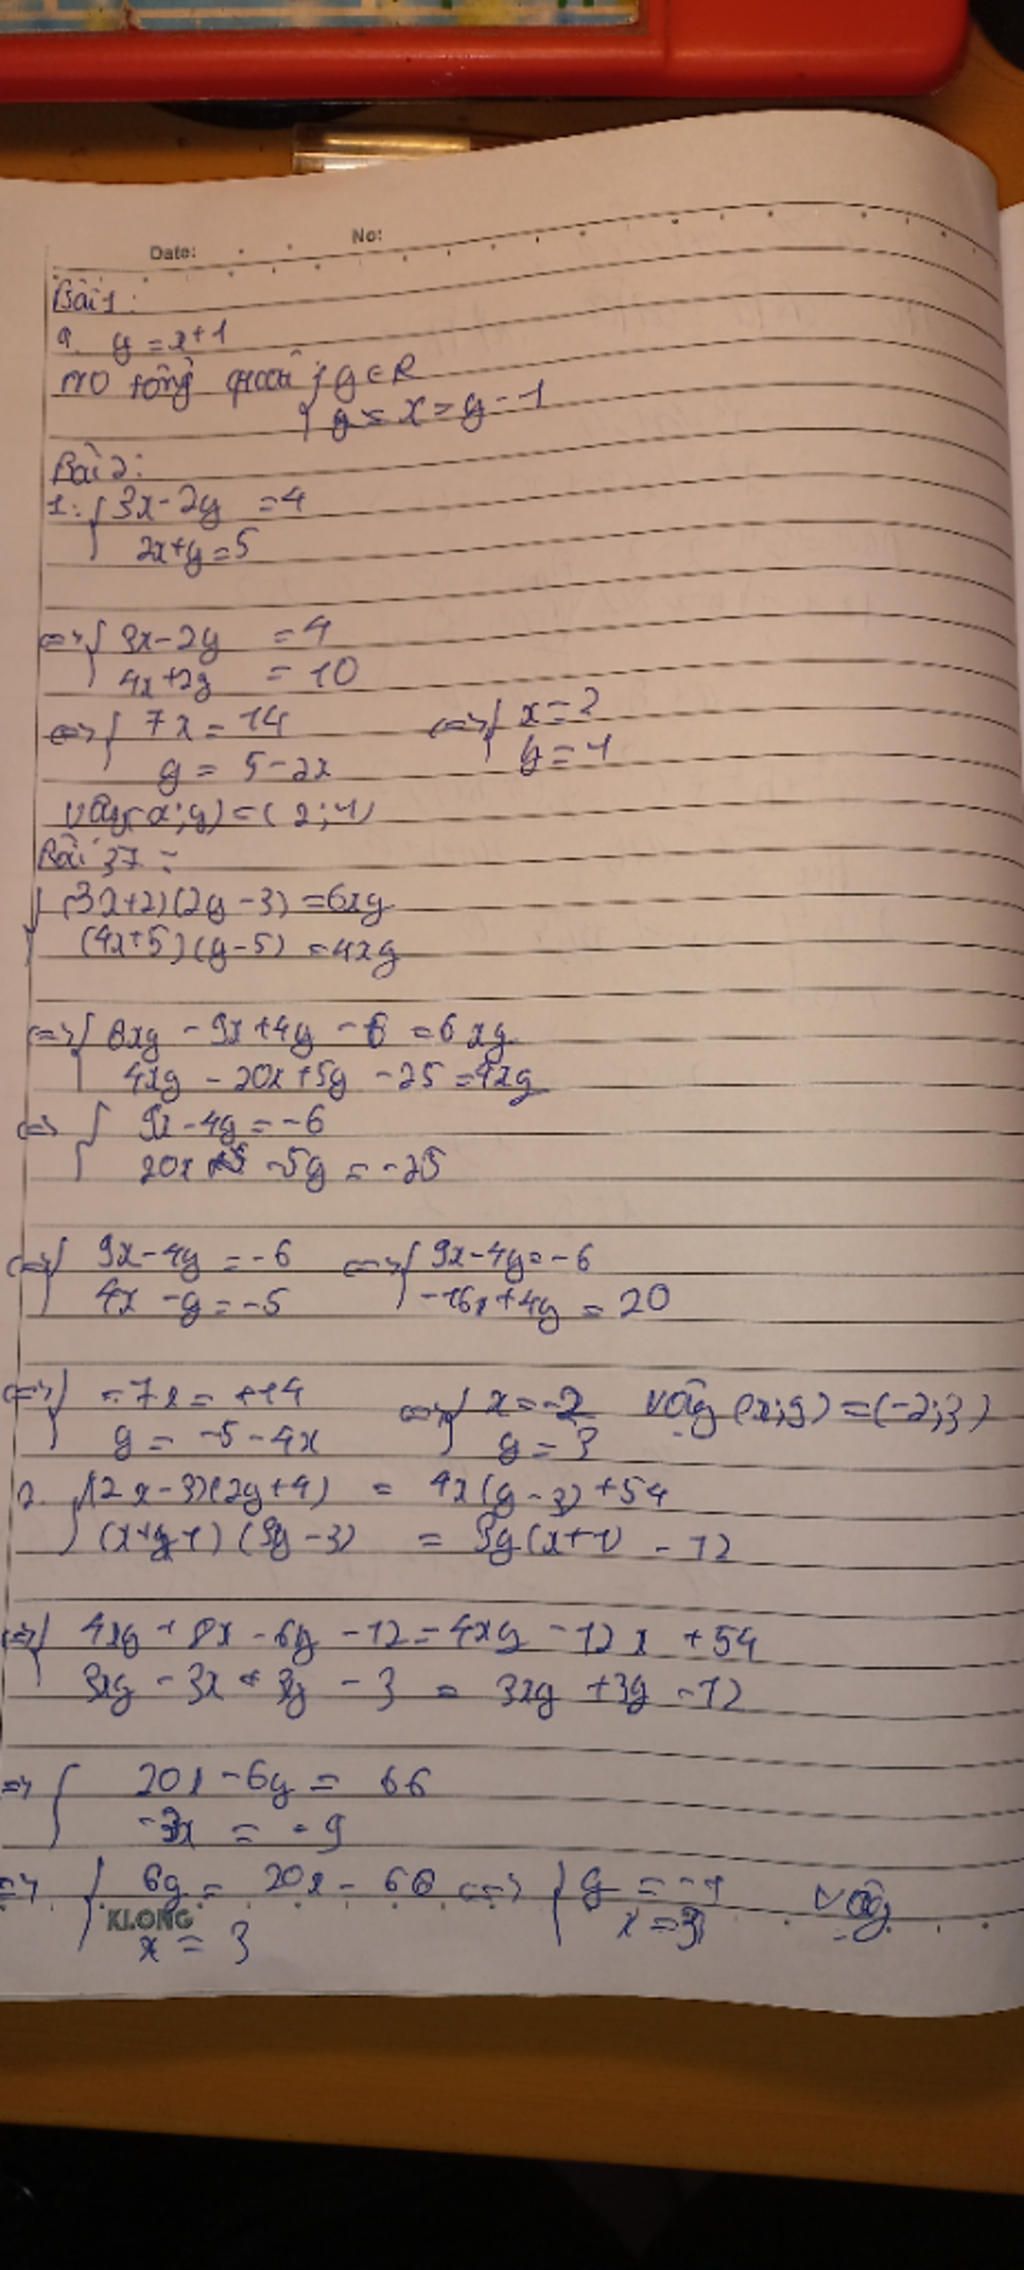 Date: No:
Bài 1:
a. y = x+1
no tổng quát { y ∈ R
x = y - 1
Bài 2:
1. { 3x - 2y = 4
2x + y = 5
<=> { 3x - 2y = 4
4x + 2y = 10
<=> { 7x = 14 <=> { x = 2
y = 5 - 2x y = 1
Vậy (x;y) = (2;1)
Bài 37:
{ (3x+2)(2y-3) = 6xy
(4x+5)(y-5) = 4xy
<=> { 6xy - 9x + 4y - 6 = 6xy
4xy - 20x + 5y - 25 = 4xy
<=> { 9x - 4y = -6
20x - 5y = -25
<=> { 9x - 4y = -6 <=> { 9x - 4y = -6
4x - y = -5 -16x + 4y = 20
<=> { -7x = 14 <=> { x = -2 Vậy (x;y) = (-2;3)
y = -5 - 4x y = 3
2. { (2x-3)(2y+4) = 4x(y-3) + 54
(3y-3) = 3y(x+1) - 12
<=> { 4xy + 8x - 6y - 12 = 4xy - 12x + 54
3xy - 3x + 3y - 3 = 3xy + 3y - 12
=> { 20x - 6y = 66
-3x = -9
=> { 6y = 20x - 66 <=> { y = -1 Vậy
KLONG
x = 3 x = 3